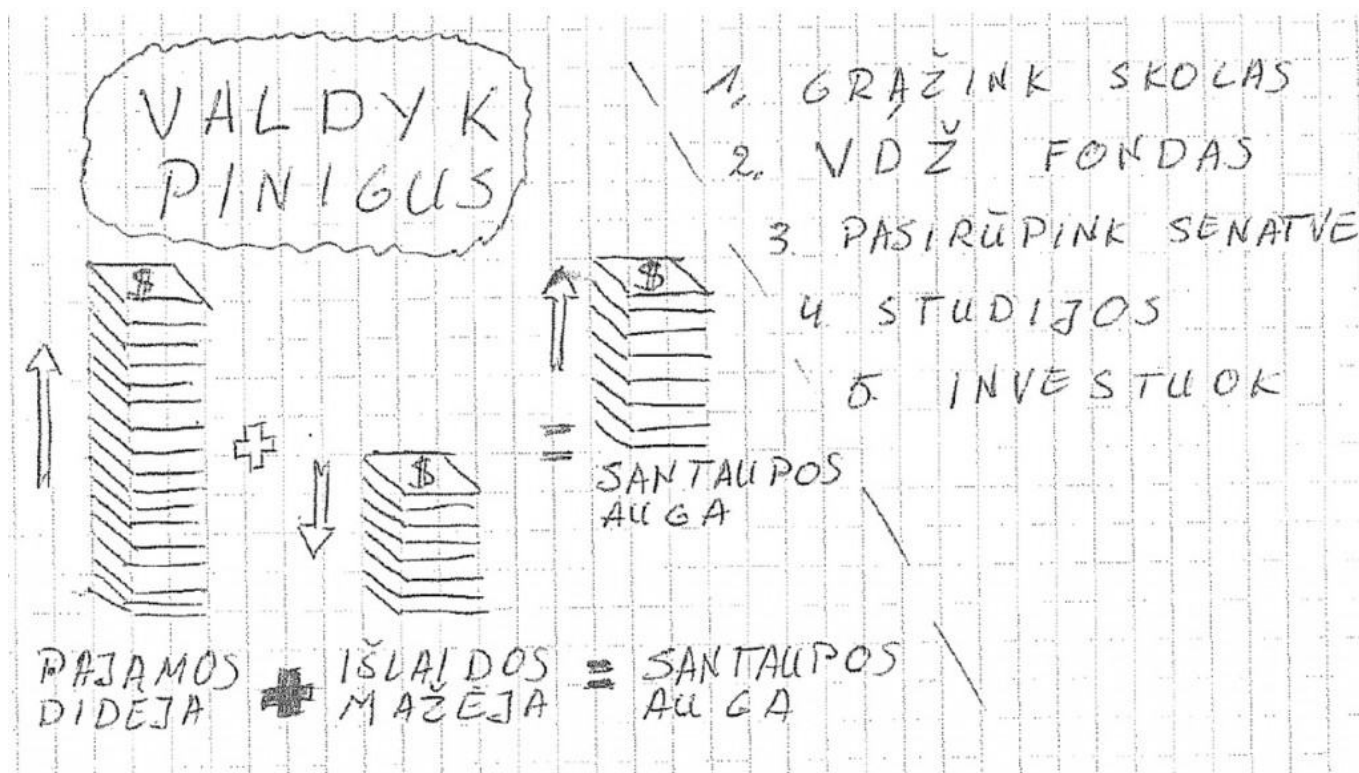 VALDYK
PINIGUS
1. GRĄŽINK SKOLAS
2. VDŽ FONDAS
3. PASIRŪPINK SENATVE
4 STUDIJOS
5. INVESTUOK
$
$
$
+
=
SANTAUPOS
AUGA
PAJAMOS + IŠLAIDOS = SANTAUPOS
DIDĖJA MAŽĖJA AUGA